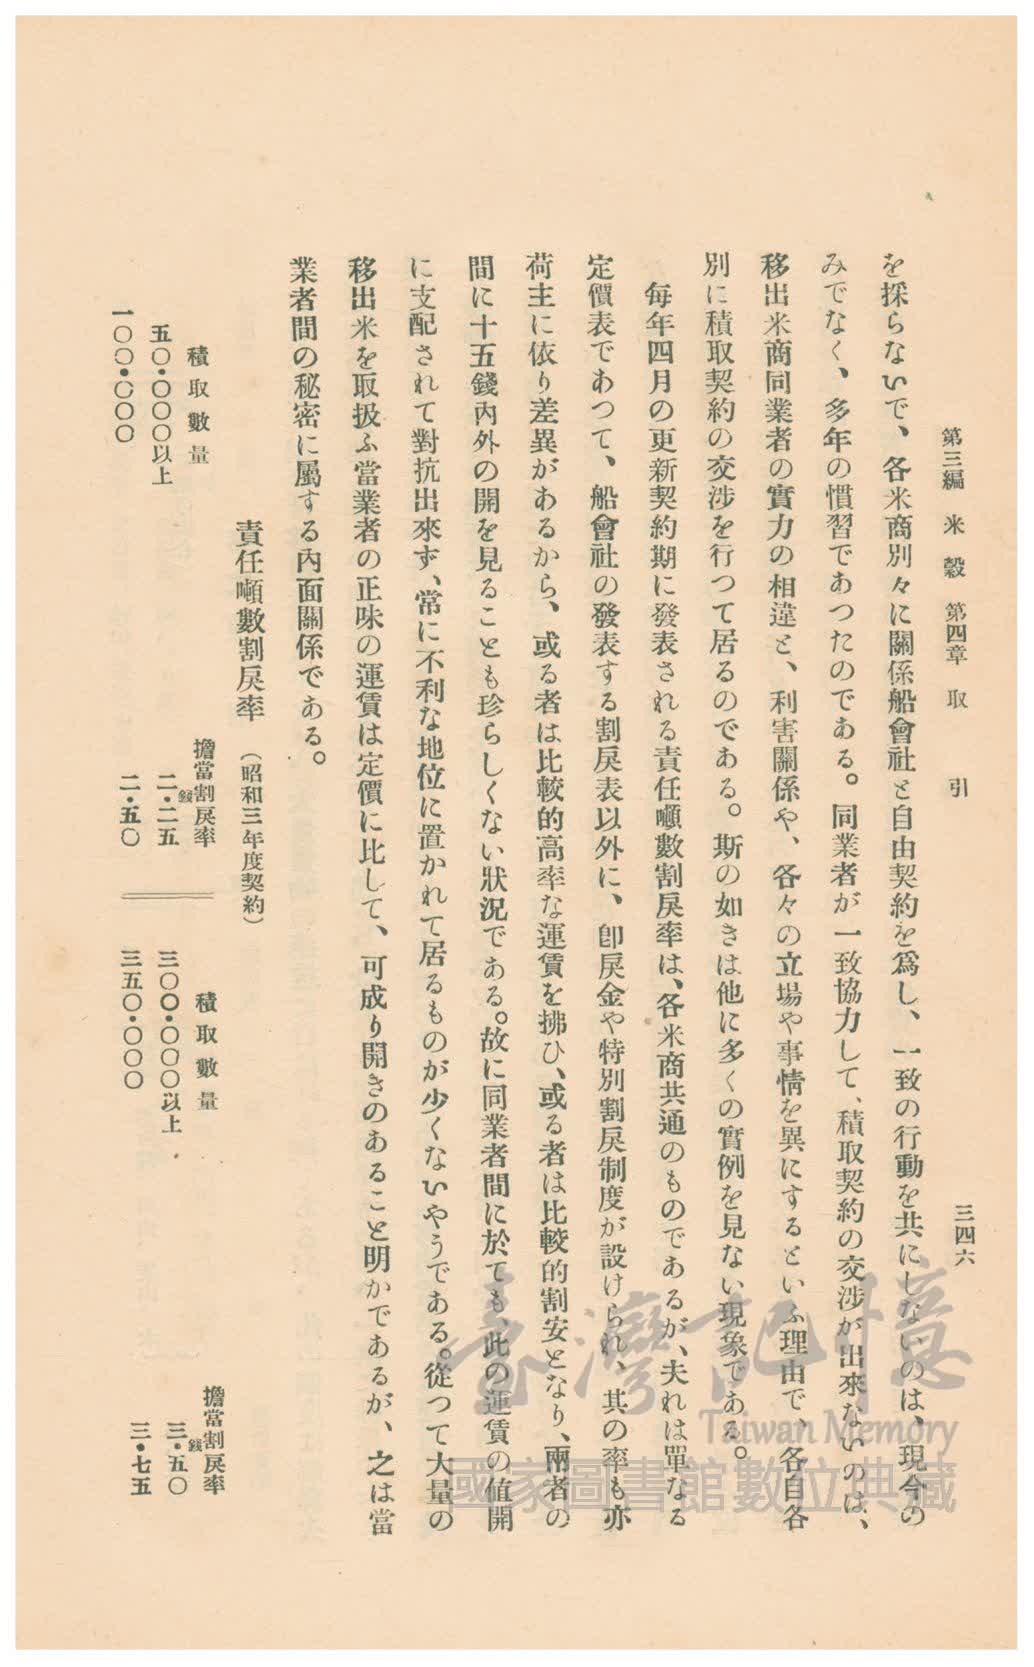 第三編　米　穀　第四章　取　引
三四六
を採らないで、各米商別々に關係船會社と自由契約を爲し、一致の行動を共にしないのは、現今の
みでなく、多年の慣習であつたのである。同業者が一致協力して、積取契約の交涉が出來ないのは、
移出米商同業者の實力の相違と、利害關係や、各々の立場や事情を異にするといふ理由で、各自各
別に積取契約の交涉を行つて居るのである。斯の如きは他に多くの實例を見ない現象である。
每年四月の更新契約期に發表される責任噸數割戾率は、各米商共通のものであるが、夫れは單なる
定價表であつて、船會社の發表する割戾表以外に、卽戾金や特別割戾制度が設けられ、其の率も亦
荷主に依り差異があるから、或る者は比較的高率な運賃を拂ひ、或る者は比較的割安となり、兩者の
間に十五錢內外の開を見ることも珍らしくない狀況である。故に同業者間に於ても、此の運賃の値開
に支配されて對抗出來ず、常に不利な地位に置かれて居るものが少くないやうである。從つて大量の
移出米を取扱ふ當業者の正味の運賃は定價に比して、可成り開きのあること明かであるが、之は當
業者間の秘密に屬する內面關係である。
責任噸數割戾率　（昭和三年度契約）
積取數量　擔當割戾率　積取數量　擔當割戾率
五〇・〇〇〇以上　二・二五錢　三〇〇・〇〇〇以上　三・五〇錢
一〇〇・〇〇〇　二・五〇　三五〇・〇〇〇　三・七五
臺灣記憶
Taiwan Memory
國家圖書館數位典藏